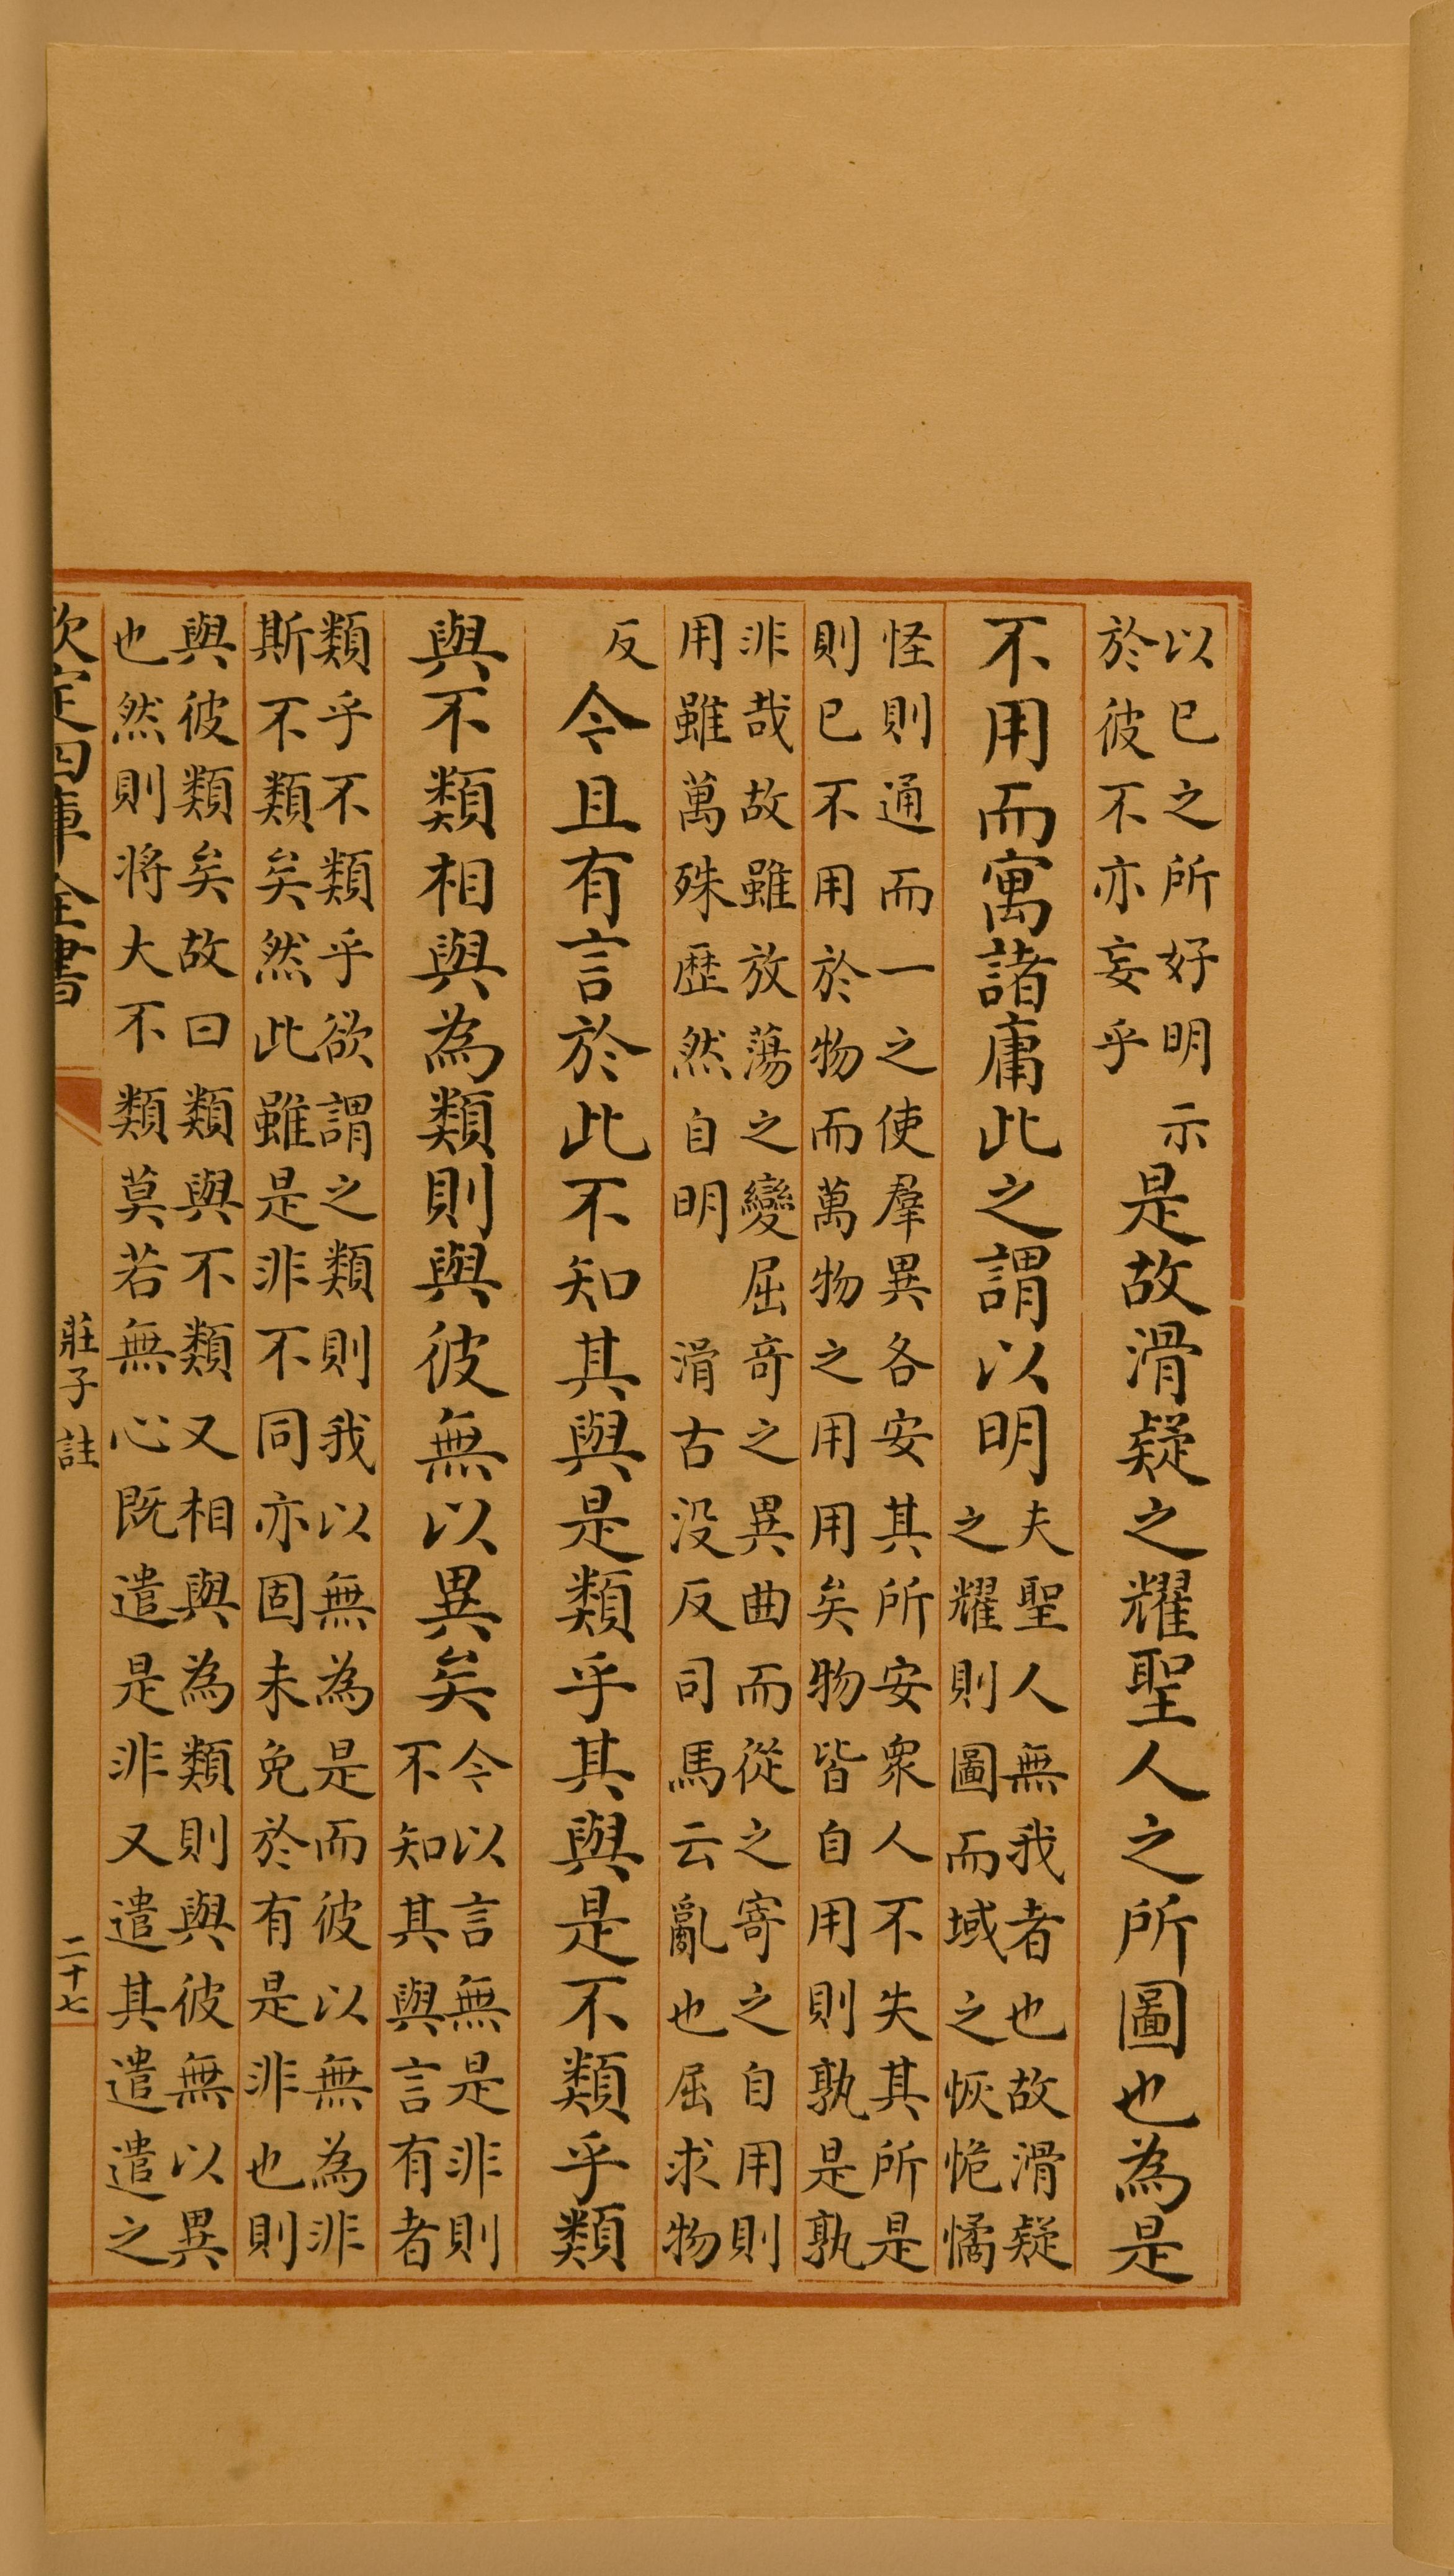 以已之所好明示
於彼不亦妄乎
是故滑疑之耀聖人之所圖也為是
不用而寓諸庸此之謂以明
夫聖人無我者也故滑疑
之耀則圖而域之恢恑憰
怪則通而一之使羣異各安其所安衆人不失其所是
則已不用於物而萬物之用用矣物皆自用則孰是孰
非哉故雖放蕩之變屈奇之異曲而從之寄之自用則
用雖萬殊歴然自明
滑古没反司馬云亂也屈求物
反
今且有言於此不知其與是類乎其與是不類乎類
與不類相與為類則與彼無以異矣
今以言無是非則
不知其與言有者
類乎不類乎欲謂之類則我以無為是而彼以無為非
斯不類矣然此雖是非不同亦固未免於有是非也則
與彼類矣故曰類與不類又相與為類則與彼無以異
也然則将大不類莫若無心既遣是非又遣其遣遣之
欽定四庫全書
莊子註
二十七